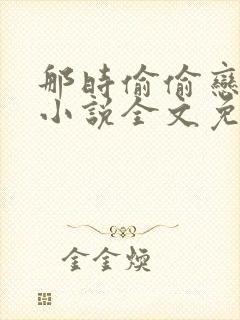 那時偷偷戀
小說全文免
金金煐